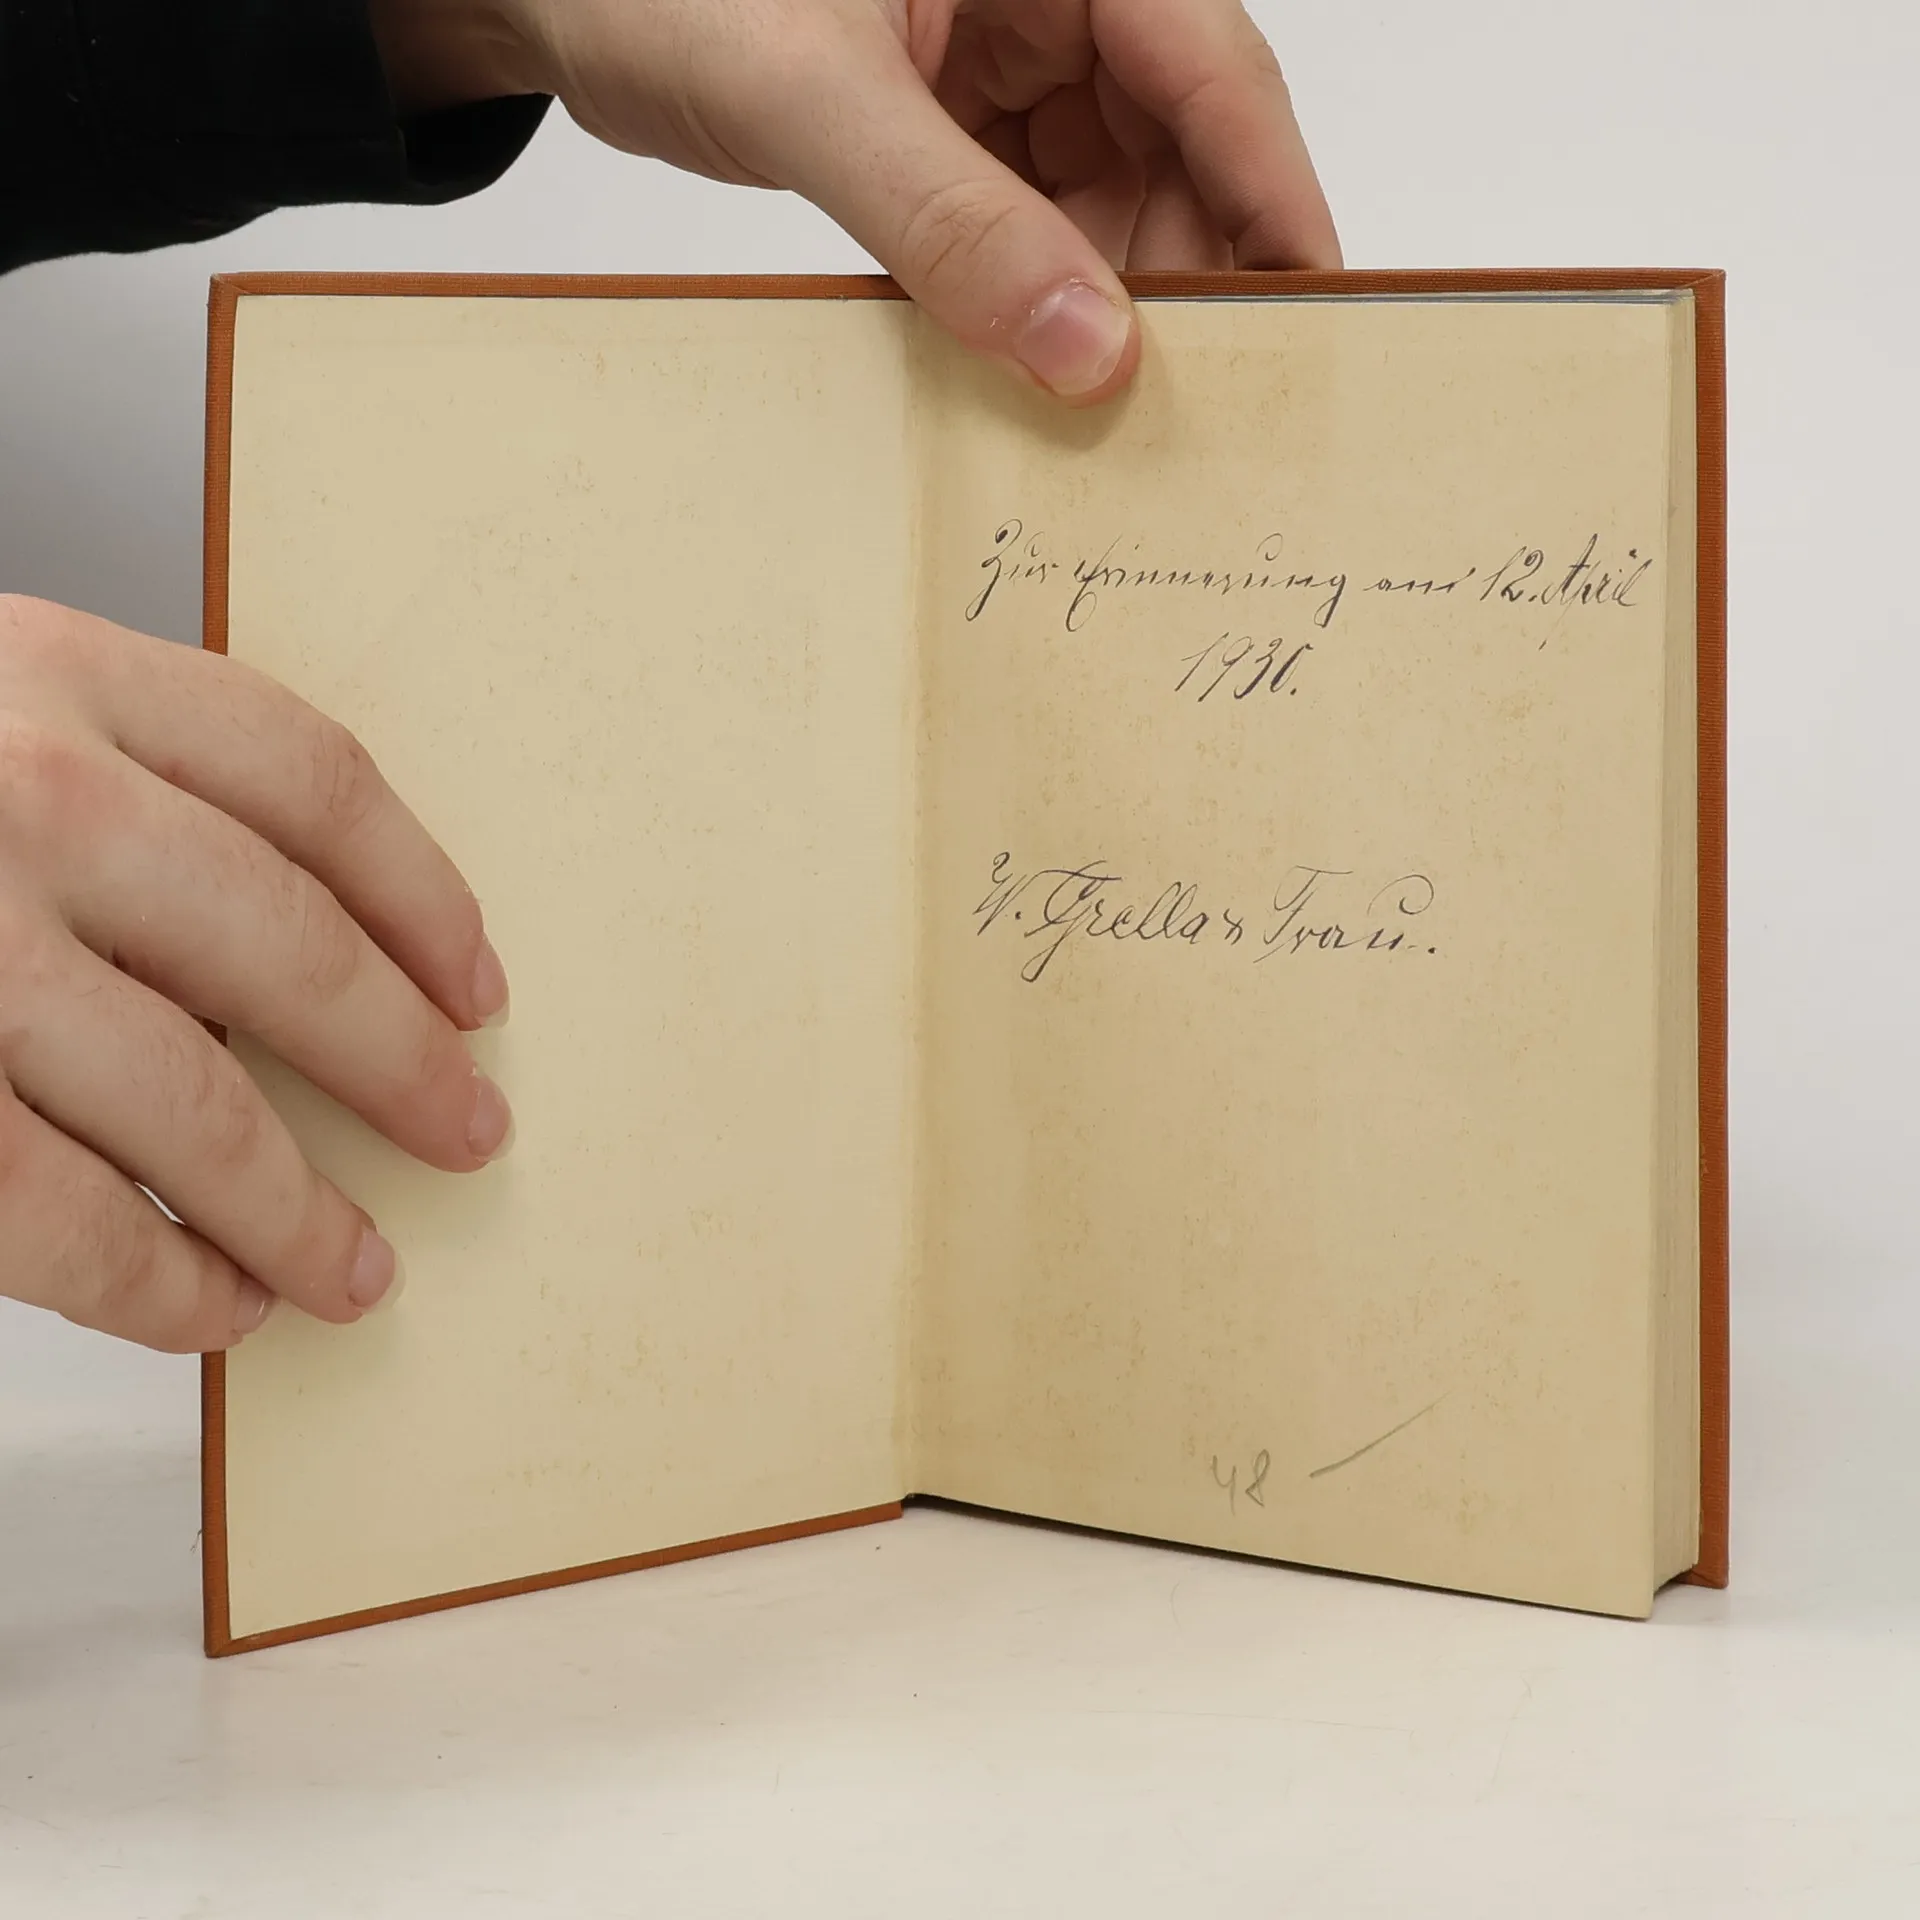 Zur Erinnerung am 12. April
1930.
W. Grella & Frau.
48